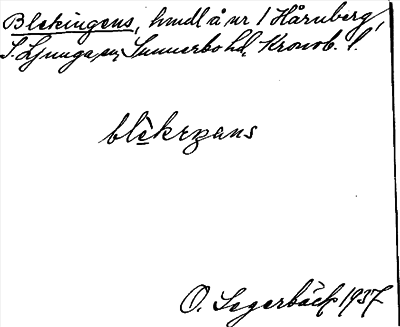 Blekingens, hmdl å nr 1 Hårnberg,
S. Ljunga sn, Sunnerbo hd, Kronob. l.
blèkeṉans
O. Segerbäck 1937